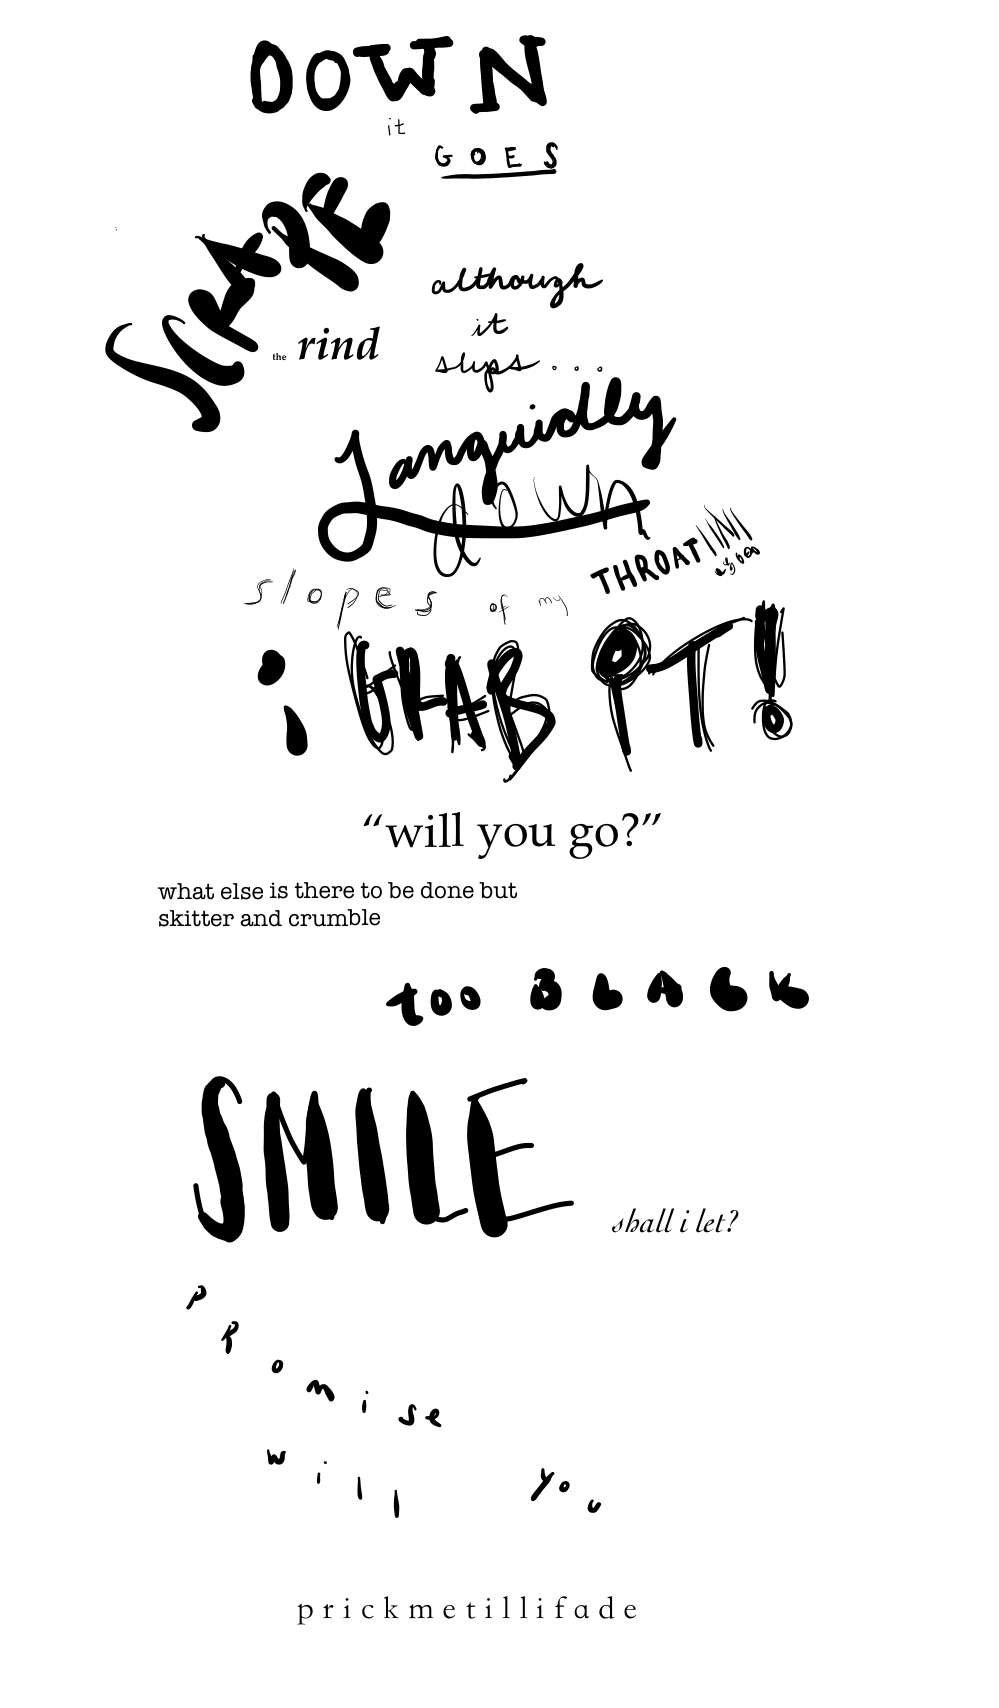 DOWN
it
GOES
SCRAPE
the rind
although
it
slips...
Languidley
down
slopes of my
THROAT!!!!
; GRAB IT!
“will you go?”
what else is there to be done but
skitter and crumble
too BLACK
SMILE
shall i let?
PRomise
will you
prickmetillifade